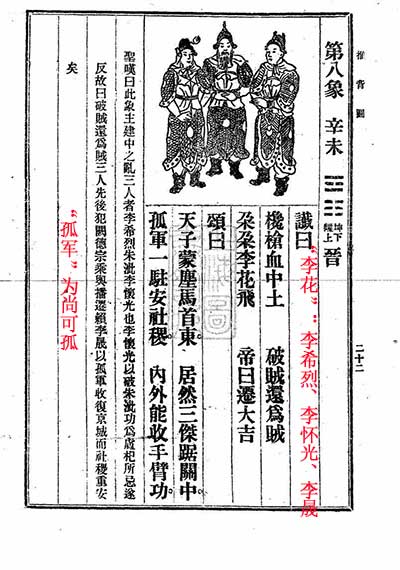 推背圖
二十二
第八象 辛未 坤下離上 晉
讖曰
“李花”：李希烈、李怀光、李晟
欃槍血中土 破賊還爲賊
朶朶李花飛 帝曰遷大吉
頌曰
天子蒙塵馬首東。 居然三傑踞關中
孤軍一駐安社稷 內外能收手臂功。
聖嘆曰此象主建中之亂三人者李希烈朱泚李懷光也李懷光以破朱泚功爲盧杞所忌遂
反故曰破賊還爲賊三人先後犯闕德宗乘輿播遷賴李晟以孤軍收復京城而社稷重安
矣
“孤军”为尚可孤